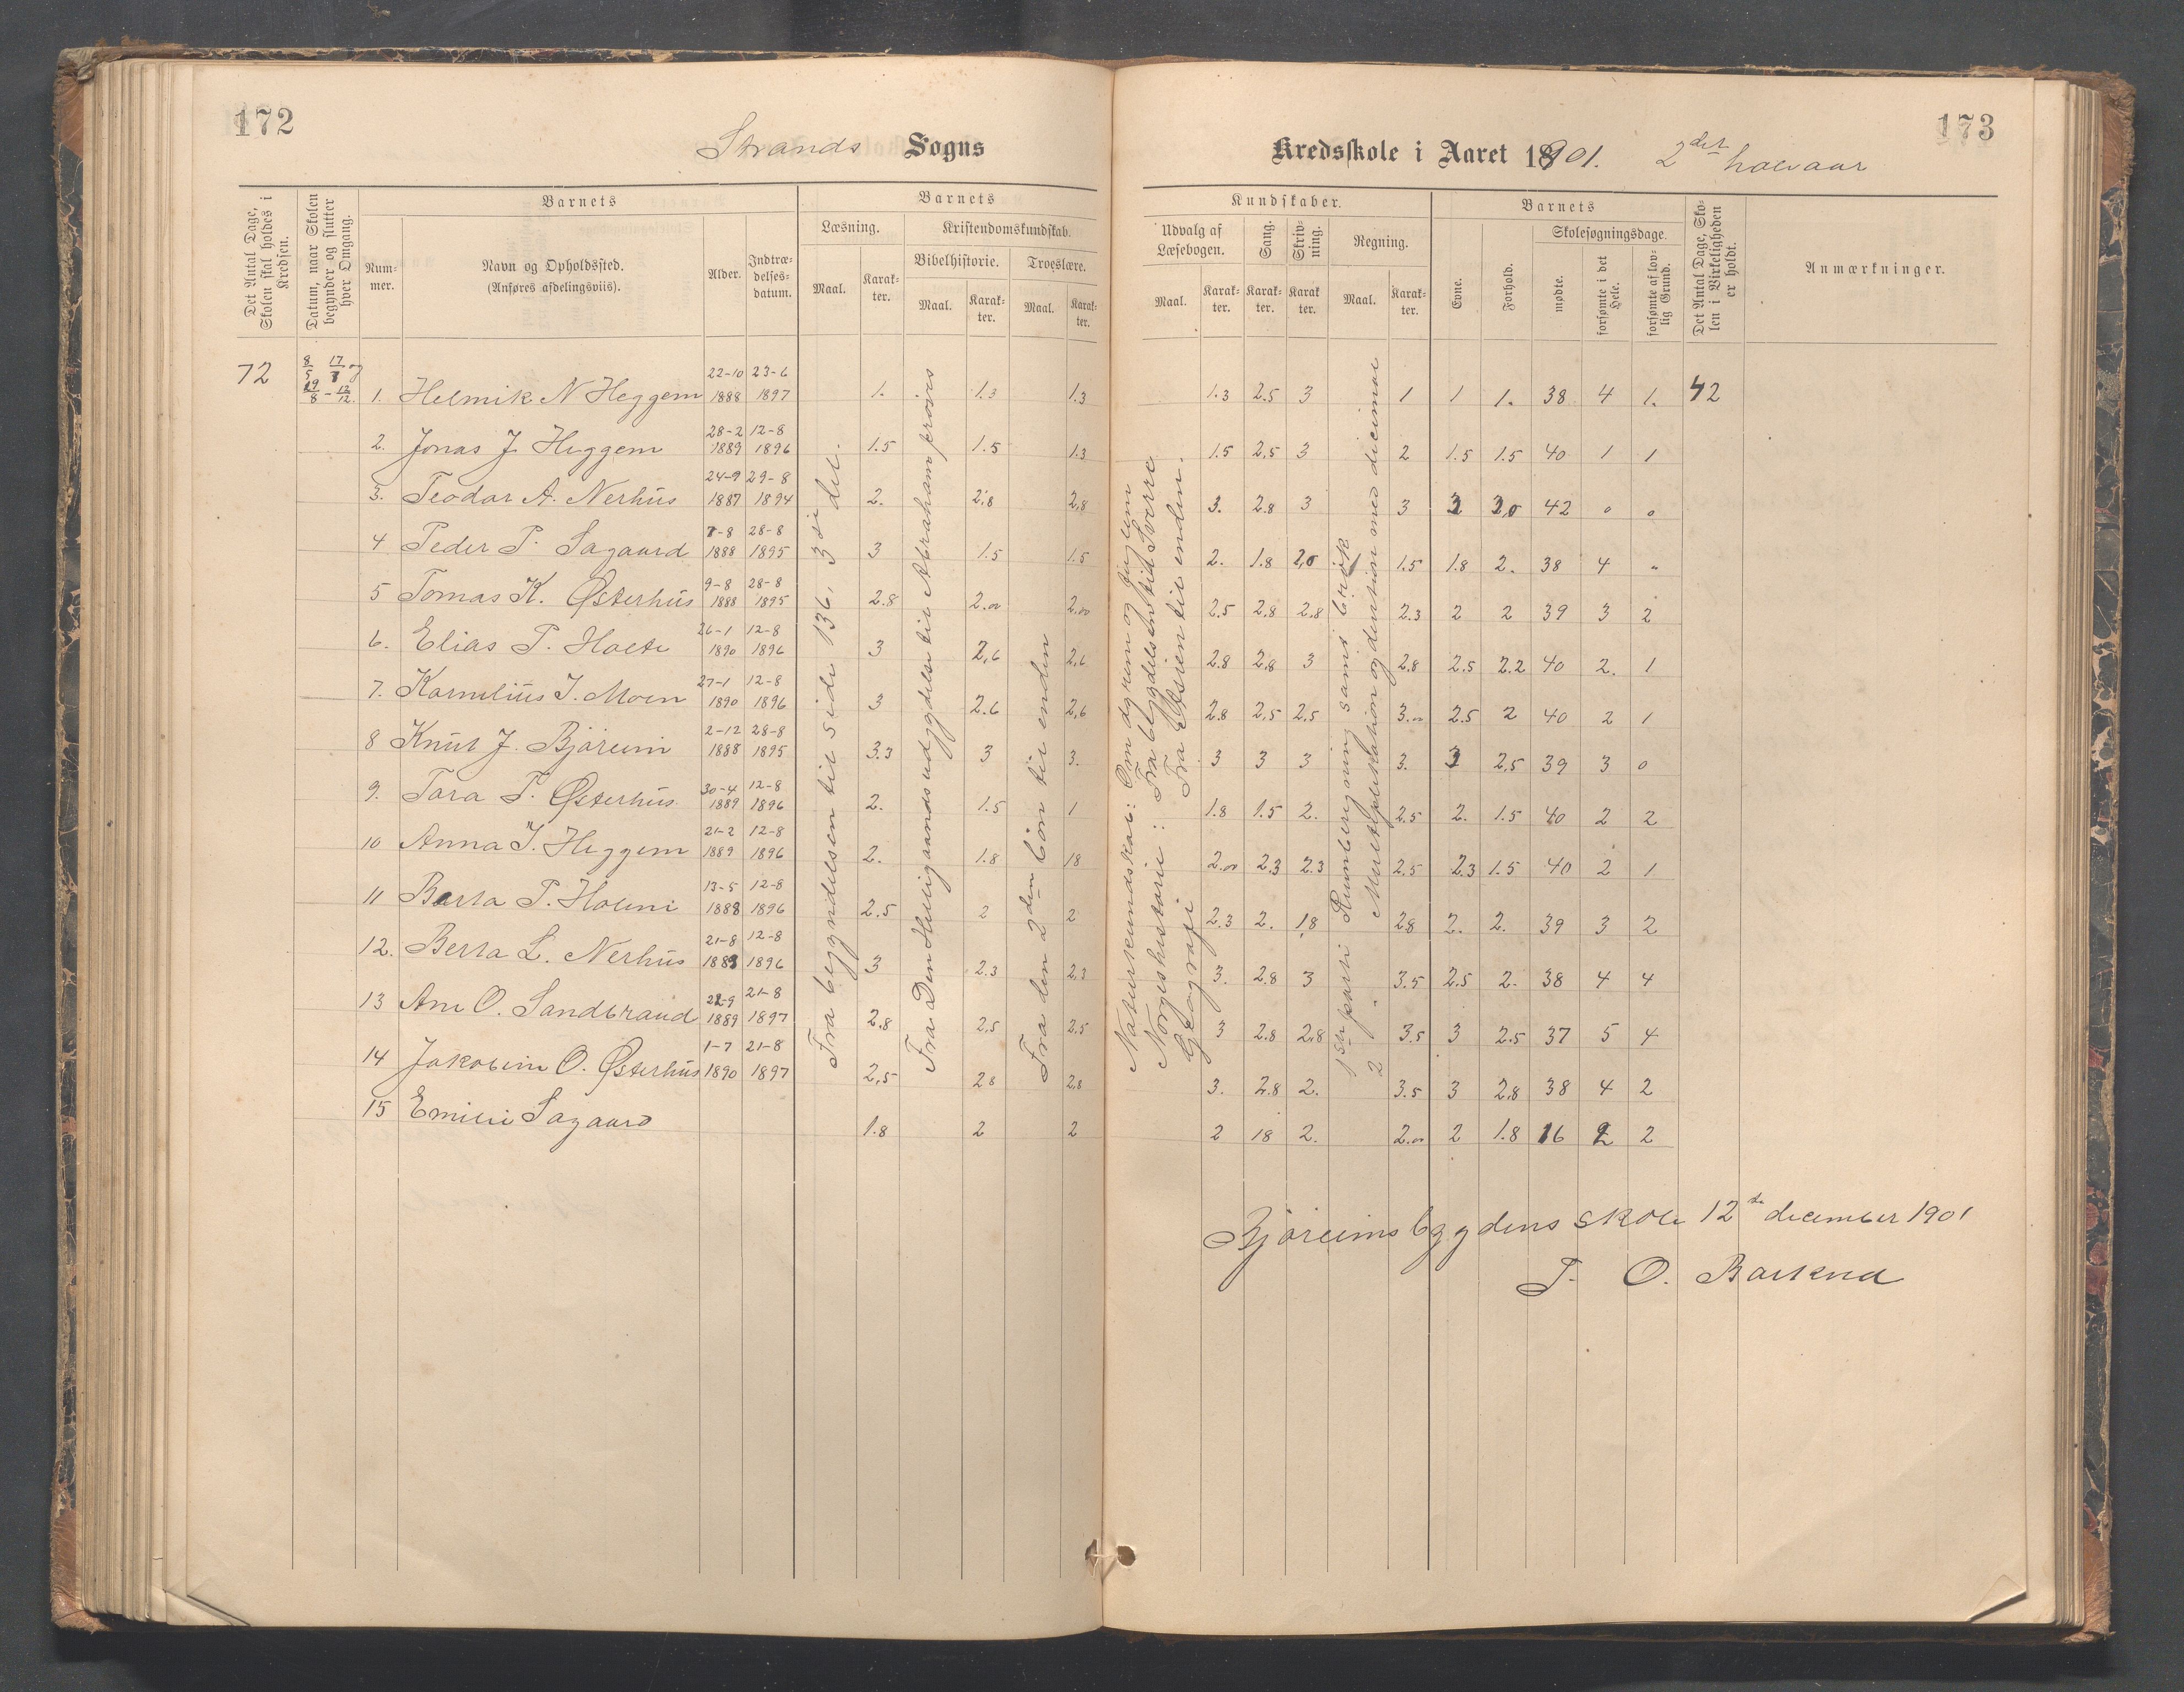 172
Strands Sogns
Det Antal Dage, Skolen skal holdes i Kredsen.
Datum, naar Skolen begynder og slutter hver Omgang.
Barnets
Nummer.
Navn og Opholdssted.
(Anføres afdelingsviis).
Alder.
Indtrædelsesdatum.
Barnets
Læsning.
Maal.
Karakter.
Kristendomskundskab.
Bibelhistorie.
Maal.
Karakter.
Troeslære.
Maal.
Karakter.
72 8/5 17/7 og 19/8 - 12/12.
1. Helmik N Heggem 22-10 1888 23-6 1897 1. 1.3 1.3
2. Jonas J. Heggem 28-2 1889 12-8 1896 1.5 1.5 1.3
3. Teodor A. Nerhus 24-9 1887 29-8 1894 2. 2.8 2.8
4 Peder P. Sagaard 7-8 1888 28-8 1895 3 1.5 1.5
5 Tomas K. Østerhus 9-8 1888 28-8 1895 2.8 2.00 2.00
6. Elias P. Holte 26-1 1890 12-8 1896 3 2,6 2,6
7. Kornelius I. Moen 27-1 1890 12-8 1896 3 2.6 2,6
8 Knut J. Bjøreim 2-12 1888 28-8 1895 3.3 3 3.
9. Tora T. Østerhus 30-4 1889 12-8 1896 2. 1.5 1
10 Anna I. Heggem 21-2 1889 12-8 1896 2. 1.8 18
11 Berta P. Holmi 13-5 1888 12-8 1896 2.5 2 2
12. Berta L. Nerhus 21-8 1889 12-8 1896 3 2.3 2.3
13 Ane O. Sandbraud 22-9 1889 21-8 1897 2.8 2.5 2,5
14 Jakobine O. Østerhus 1-7 1890 21-8 1897 2,5 28 2,8
15 Emilie Sagaard 1.8 2 2
Fra begyndelsen til side 136, 3die del.
Fra Den Helligaands udgydelse til Abraham prøves
Fra den 2den bön til enden
173
Kredsskole i Aaret 1901. 2det halvaar
Kundskaber.
Udvalg af Læsebogen.
Maal.
Karakter.
Sang.
Karakter.
Skrivning.
Karakter.
Regning.
Maal.
Karakter.
Barnets
Evne.
Forhold.
Skolesøgningsdage.
mødte.
forsømte i det Hele.
forsømte af lovlig Grund.
Det Antal Dage, Skolen i Virkeligheden er holdt.
Anmærkninger.
1.3 2.5 3 1 1 1. 38 4 1. 42
1.5 2,5 3 2 1.5 1.5 40 1 1
3. 2.8 3 3 3 3,0 42 0 0
2. 1.8 2,0 1.5 1.8 2. 38 4 "
2.5 2,8 2.8 2.3 2 2 39 3 2
2.8 2,8 3 2.8 2.5 2.2 40 2. 1
2.8 2,5 2,5 3.00 2.5 2 40 2 1
3 3 3 3. 3 2,5 39 3 0
1.8 1.5 2. 2.5 2. 1.5 40 2 2
2.00 2.3 2.3 2.5 2.3 1.5 40 2 1
2.3 2. 1,8 28 2. 2. 39 3 2
3. 2.8 3 3.5 2,5 2. 38 4 4
3 2.8 2,8 3.5 3 2.5 37 5 4
3. 2.8 2. 3.5 3 2,8 38 4 2
2 18 2. 2.00 2 1.8 16 2 2
Naturkundskab: Om dyrene og fuglene
Norgeshistorie: Fra begyndelsen til Sverre
Geografi Fra Asien til enden.
1ste parti Rumberegning samt brøk
2 " Multiplikation og division med decimal
Björeimsbygdens skole 12te december 1901
T. O. Barknd